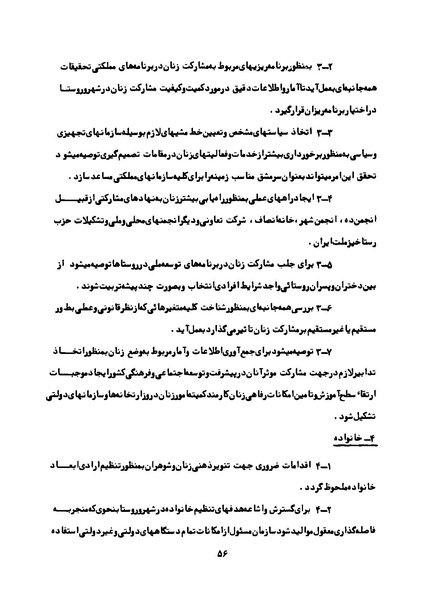 ۲ــ۳ بمنظور برنامه ریزیهای مربوط به مشارکت زنان در برنامه های مملکتی تحقیقات
همه جانبه ای بعمل آید تا آمار و اطلاعات دقیق در مورد کمیت و کیفیت مشارکت زنان در شهر و روستا
در اختیار برنامه ریزان قرار گیرد .
۳ــ۳ اتخاذ سیاستهای مشخص و تعیین خط مشیهای لازم بوسیله سازمانهای تجهیزی
و سیاسی به منظور برخورداری بیشتر از خدمات و فعالیتهای زنان در مقامات تصمیم گیری توصیه میشود
تحقق این امر میتواند بعنوان سرمشق مناسب زمینه را برای کلیه سازمانهای مملکتی مساعد سازد .
۴ــ۳ ایجاد راههای عملی بمنظور راه یابی بیشتر زنان به نهادهای مشارکتی از قبیل
انجمن ده ، انجمن شهر ، خانه انصاف ، شرکت تعاونی و دیگر انجمنهای محلی و ملی و تشکیلات حزب
رستاخیز ملت ایران .
۵ــ۳ برای جلب مشارکت زنان در برنامه های توسعه ملی در روستاها توصیه میشود از
بین دختران و پسران روستائی واجد شرایط افرادی انتخاب و بصورت چند پیشه تربیت شوند .
۶ــ۳ بررسی همه جانبه ای بمنظور شناخت کلیه متغیرهائی که از نظر قانونی و عملی بطور
مستقیم یا غیر مستقیم بر مشارکت زنان تاثیر می گذارد بعمل آید .
۷ــ۳ توصیه میشود برای جمع آوری اطلاعات و آمار مربوط به وضع زنان بمنظور اتخاذ
تدابیر لازم در جهت مشارکت موثر آنان در پیشرفت و توسعه اجتماعی و فرهنگی کشور ایجاد موجبات
ارتقاء سطح آموزش و تامین امکانات رفاهی زنان کارمند کمیته امور زنان در وزارتخانه ها و سازمانهای دولتی
تشکیل شود .
۴ــ خانواده
۱ــ۴ اقدامات ضروری جهت تنویر ذهنی زنان و شوهران بمنظور تنظیم ارادی ابعاد
خانواده ملحوظ گردد .
۲ــ۴ برای گسترش و اشاعه هدفهای تنظیم خانواده در شهر و روستا بنحوی که منجر به
فاصله گذاری معقول موالید شود سازمان مسئول از امکانات تمام دستگاههای دولتی و غیر دولتی استفاده
۵۶